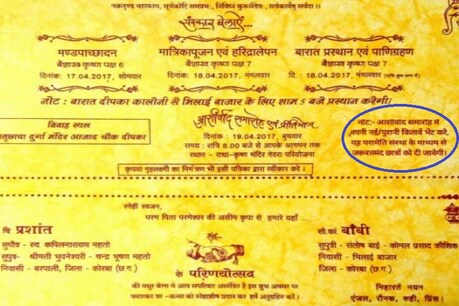 वक्रतुण्ड महाकाय, सूर्यकोटि समप्रभ, निर्विघ्नं कुरुमेदेव, सर्वकार्येषु सर्वदा ।।
संस्कार बेलाएँ
मण्डपाच्छादन
बैशाख कृष्ण पक्ष 6
दिनांक: 17.04.2017, सोमवार
मात्रिकापूजन एवं हरिद्रालेपन
बैशाख कृष्ण पक्ष 7
दिनांक: 18.04.2017, मंगलवार
बारात प्रस्थान एवं पाणिग्रहण
बैशाख कृष्ण पक्ष 7
दि.: 18.04.2017, मंगलवार
नोट: बारात दीपका कालोनी से भिलाई बाजार के लिए शाम 5 बजे प्रस्थान करेगी।
विवाह स्थल
दुर्गा मंदिर आजाद चौक दीपका
आशीर्वाद समारोह एवं प्रीतिभोज
दिनांक: 19.04.2017, बुधवार
समय: रात्रि 8.00 बजे से आपके आगमन तक
स्थान - राधा-कृष्ण मंदिर गेवरा परियोजना
कृपया गृहलक्ष्मी का निमंत्रण भी इसी पत्रिका द्वारा स्वीकार करें ।
नोट:- आशीर्वाद समारोह में
अपनी नई/पुरानी किताबें भेंट करे,
यह संस्था के माध्यम से
जरूरतमंद छात्रों को दी जावेगी।
स्नेही स्वजन,
परम पिता परमेश्वर की असीम कृपा से हमारे यहाँ
चि. प्रशांत
सुपौत्र - स्व. कपिलनारायण महतो
सुपुत्र - श्रीमती भुवनेश्वरी - चन्द्र भूषण महतो
निवासी - बरपाली, जिला - कोरबा (छ.ग.)
सौ.कां. बॉबी
सुपुत्री - संतोष बाई - कोमल प्रसाद कौशिक
निवासी - भिलाई बाजार
जिला - कोरबा (छ.ग.)
के परिणयोत्सव
की मधुर बेला में आप सपरिवार आमंत्रित हैं इस शुभ अवसर पर
पधारकर वर - कन्या को स्नेहाशीष प्रदान कर हमें अनुग्रहित करें ।
निहारते नयन
एंजल, रौनक, रुही,